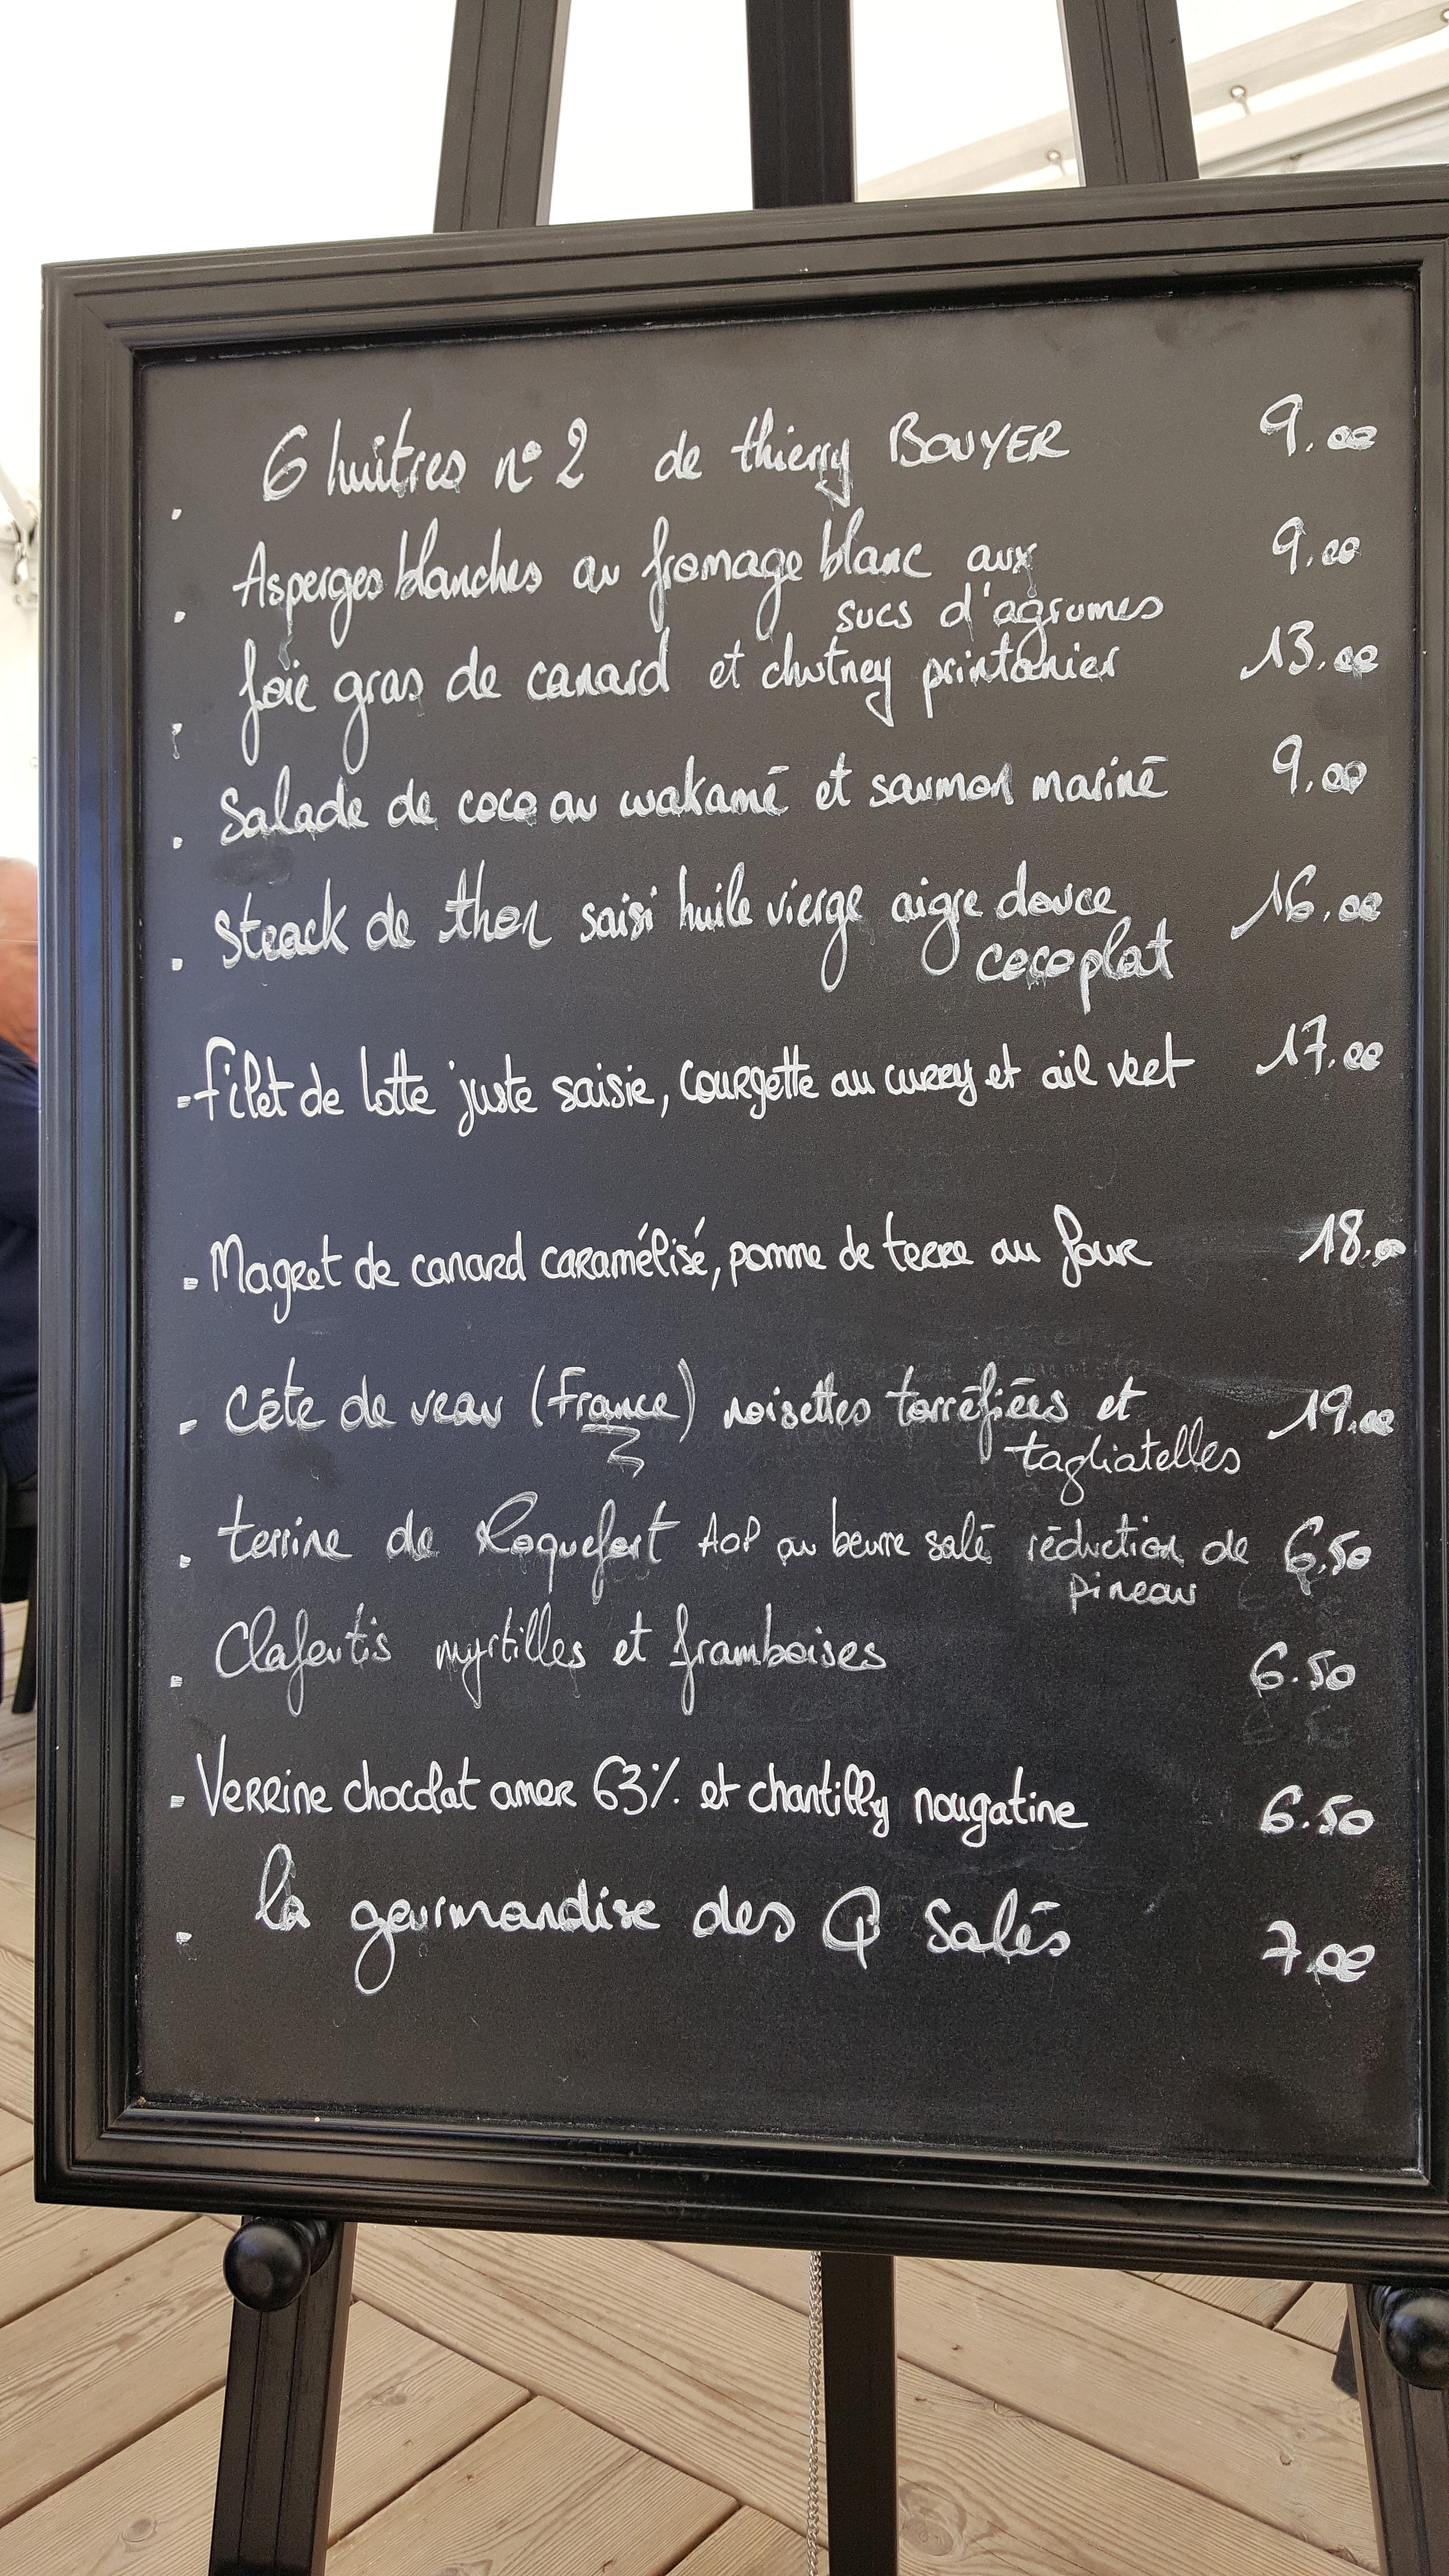 . 6 huîtres n°2 de thierry BOUYER 9.00
. Asperges blanches au fromage blanc aux 9.00
sucs d'agrumes
. foie gras de canard et chutney printanier 13.00
. Salade de coco au wakamé et saumon mariné 9.00
. Steack de thon saisi huile vierge aigre douce 16.00
coco plat
- filet de lotte juste saisie, courgette au curry et ail vert 17.00
- Magret de canard caramélisé, pomme de terre au four 18.00
- Côte de veau (France) noisettes torréfiées et 19.00
tagliatelles
. terrine de Roquefort AOP au beurre salé réduction de 6.50
pineau
. Clafoutis myrtilles et framboises 6.50
- Verrine chocolat amer 63% et chantilly nougatine 6.50
. la gourmandise des Q Salés 7.00